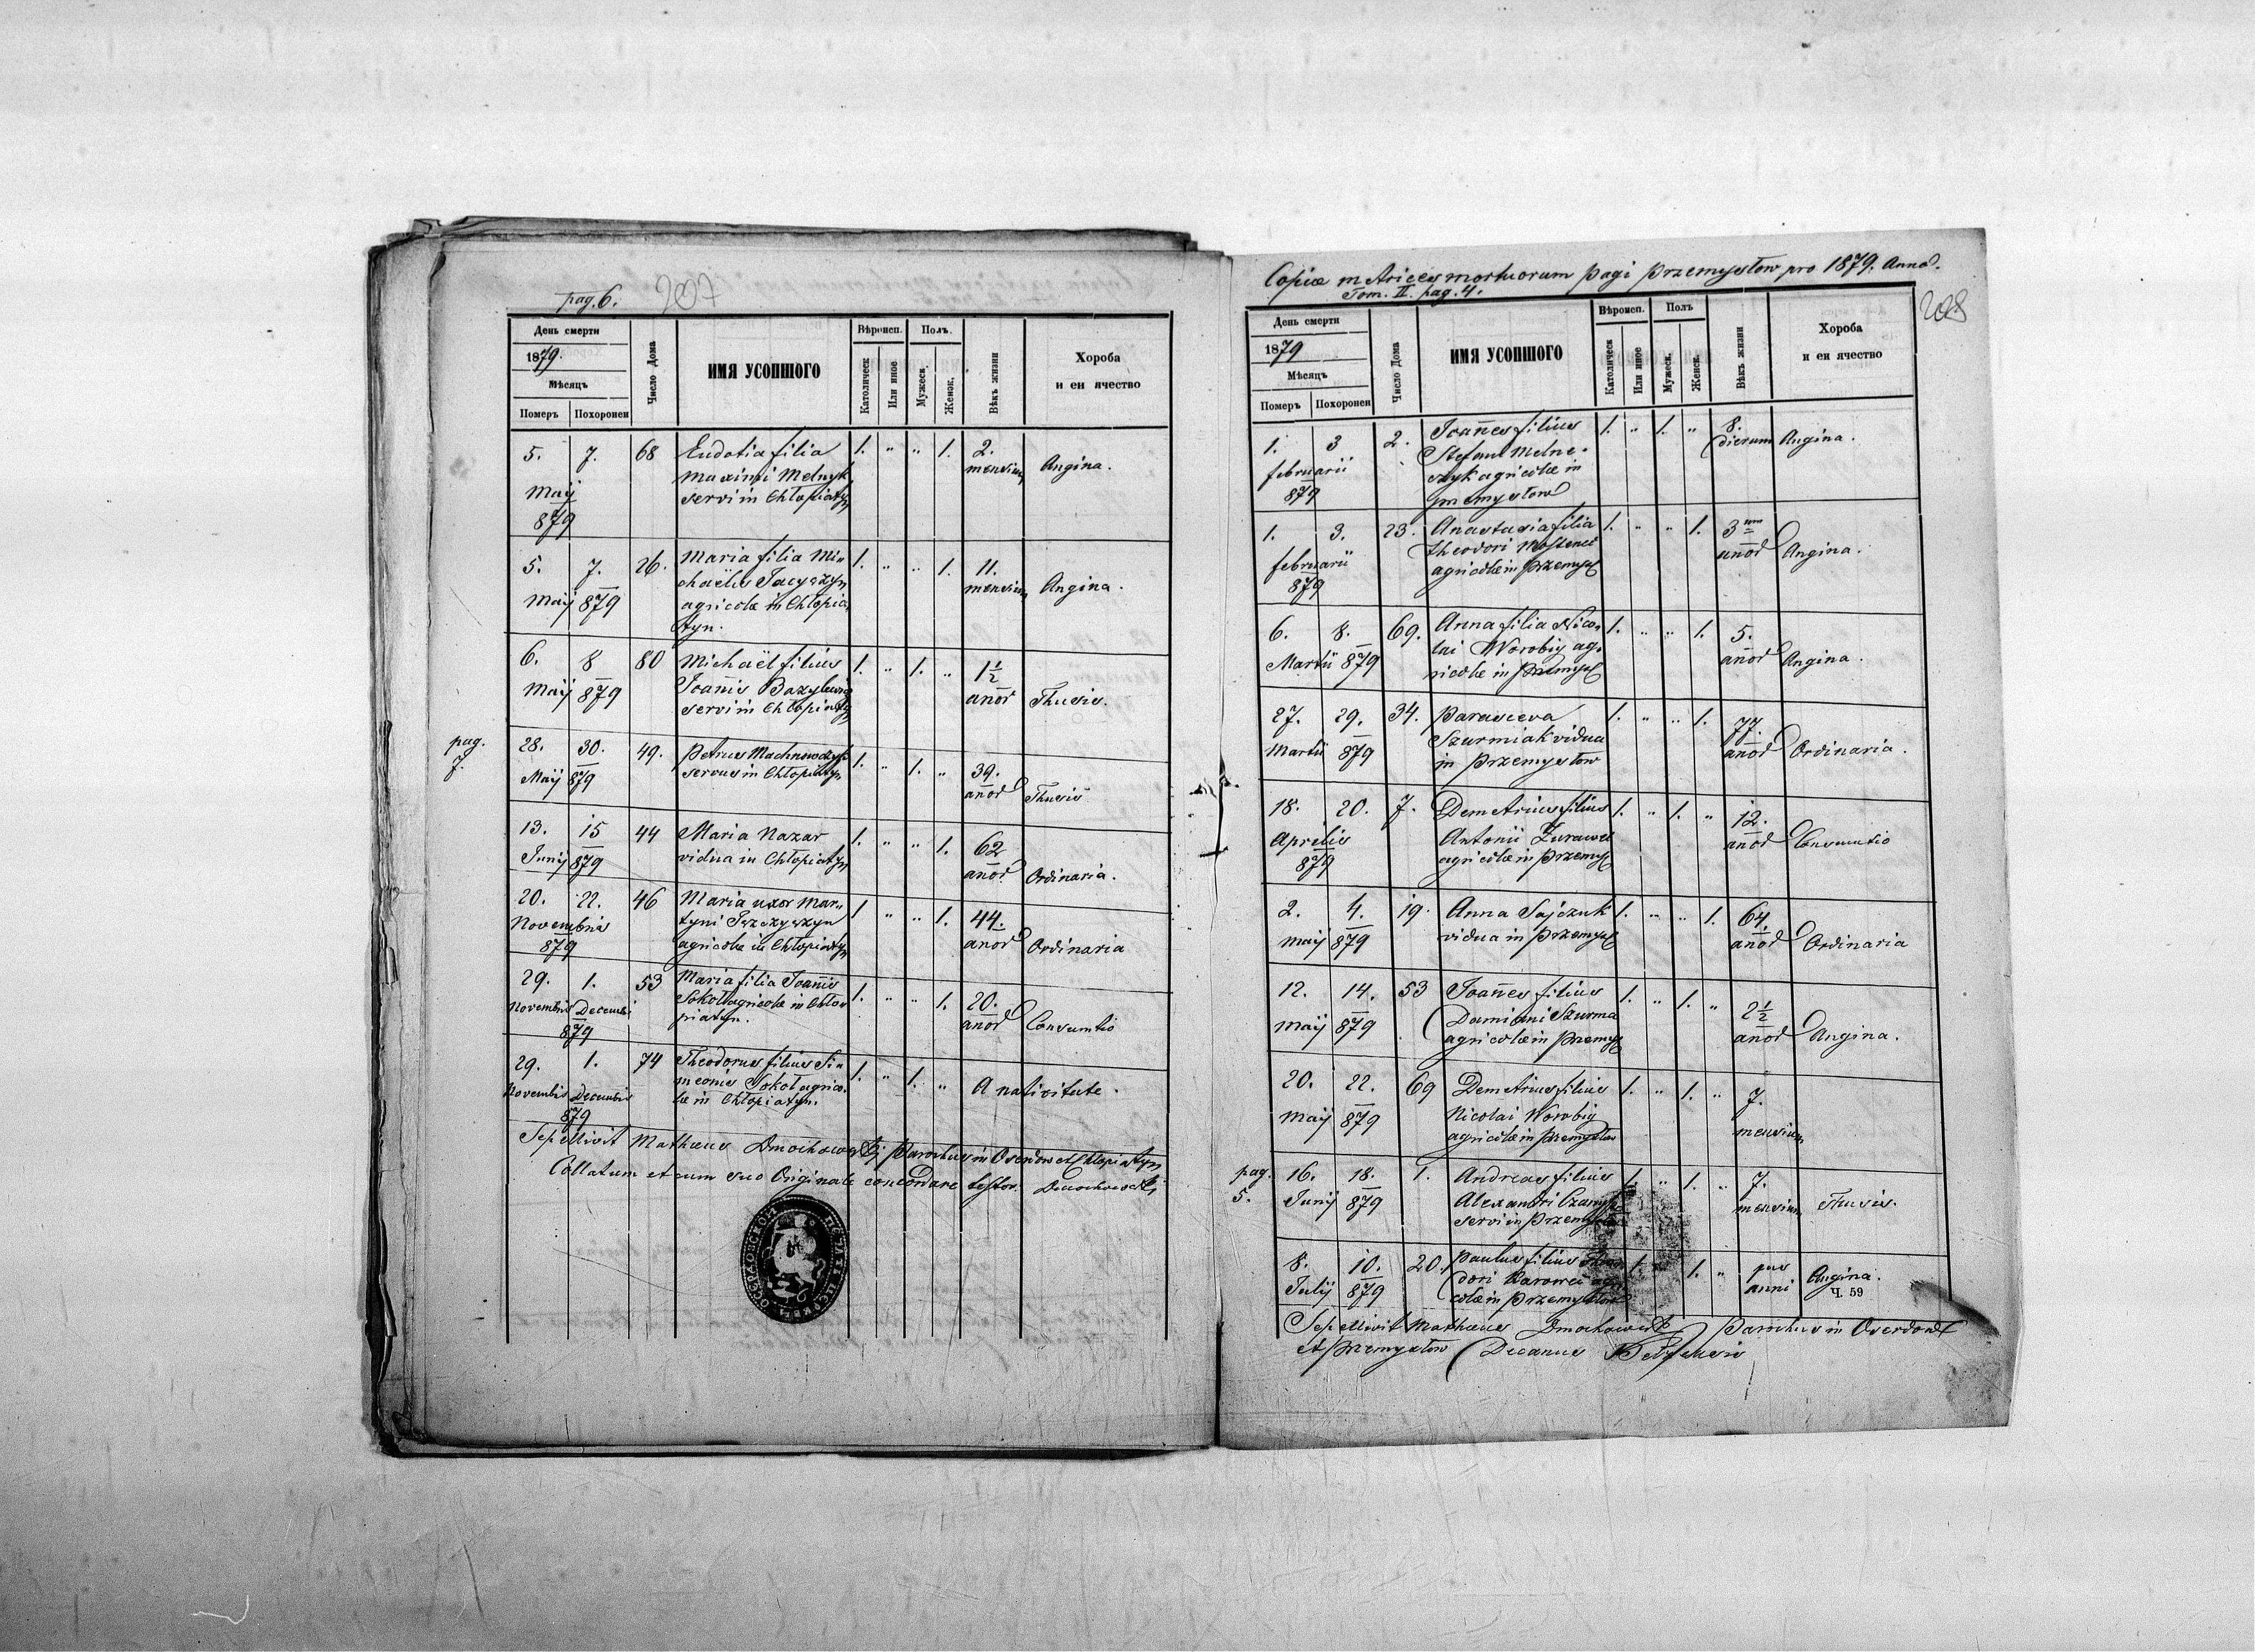 pag. 6. 207
День смерти
1879.
Мѣсяцъ
Померъ Похоронен
Число Дома
ИМЯ УСОПШОГО
Вѣроисп.
Католическ
Или иное
Полъ.
Мужеск.
Женск.
Вѣкъ жизни
Хороба
и еи ячество
5. 7. 68 Eudotia filia 1. " " 1. 2.
Maximi Melnyk mensium Angina.
Maij servi in Chłopiatyn
879
5. 7. 26. Maria filia Mi- 1. " " 1. 11.
chaëlis mensium Angina.
Maij 879 agricolæ in Chłopia
tyn.
6. 8 80 Michaël filius 1. " 1. " 1½
Maij 879 Joañis Bazylewicz anor Thusis.
servi in Chłopiatyn
pag. 7.
28. 30. 49. Petrus 1. " 1. " 39.
Maij 879 servus in Chłopiatyn anor Thusis
13. 15 44 Maria Nazar 1. " " 1. 62
Junij 879 vidua in Chłopiatyn anor Ordinaria.
20. 22. 46 Maria uxor Mar- 1 " " 1. 44
Novembris tyni
879 agricolæ in Chłopiatyn anor Ordinaria
29. 1. 53 Maria filia Joañis 1. " " 1. 20.
Novembris Decembri Sokoł agricolæ in Chło
879 piatyn. anor Consumtio
29. 1. 74 Theodorus filius Si- 1. " 1. " A nativitate.
Novembris Decembris meonis Sokoł agrico-
879 læ in Chłopiatyn.
Sepellivit Mathæus Dmochowskj Parochus in Oserdow et Chłopiatyn
Collatum et cum suo Originale concordare testor. Dmochowskj
Copiæ metrices mortuorum pagi Przemysłow pro 1879. Anno.
Tom. II. pag. 4.
208
День смерти
1879
Мѣсяцъ
Померъ Похоронен
Число Дома
ИМЯ УСОПШОГО
Вѣроисп.
Католическ
Или иное
Полъ
Мужеск.
Женск.
Вѣкъ жизни
Хороба
и еи ячество
1. 3 2. Joañes filius 1. " 1. " 8.
februarii Stefani Melne- dierum Angina.
879 czyk agricolæ in
Przemysłow
1. 3. 23. Anastasia filia 1. " " 1. 3
februarii Theodori anor Angina.
879 agricolæ in Przemysł
6. 8. 69. Anna filia Nico- 1. " " 1. 5.
Martii 879 lai Worobij ag- anor Angina.
ricolæ in Przemysł
27. 29. 34. Parasceva 1. " " 1. 77.
Martii 879 Szurmiak vidua anor Ordinaria.
in Przemysłow
18. 20. 7. Demetrius filius 1. " 1. " 12.
Aprilis Antonii Żurawel anor Consumtio
879 agricolæ in Przemysł
2. 4. 19. Anna Sajczuk 1. " " 1. 64.
Maij 879 vidua in Przemysł anor Ordinaria
12. 14. 53 Joañes filius 1. " 1. " 2½
Maij 879 Damiani Szurma anor Angina.
agricolæ in Przemysł
20. 22. 69 Demetrius filius 1. " 1. " 7.
Maij 879 Nicolai Worobij mensium
agricolæ in Przemysłow
pag. 5.
16. 18. 1. Andreas filius 1. " 1. " 7.
Junij 879 Alexandri mensium Thusis.
servi in Przemysłow
8. 10. 20. Paulus filius Theo 1. " 1. " Angina.
Julij 879 dori agri anni
colæ in Przemysłow
Ч. 59
Sepellivit Mathæus Dmochowski Parochus in Oserdow
et Przemysłow Decanus